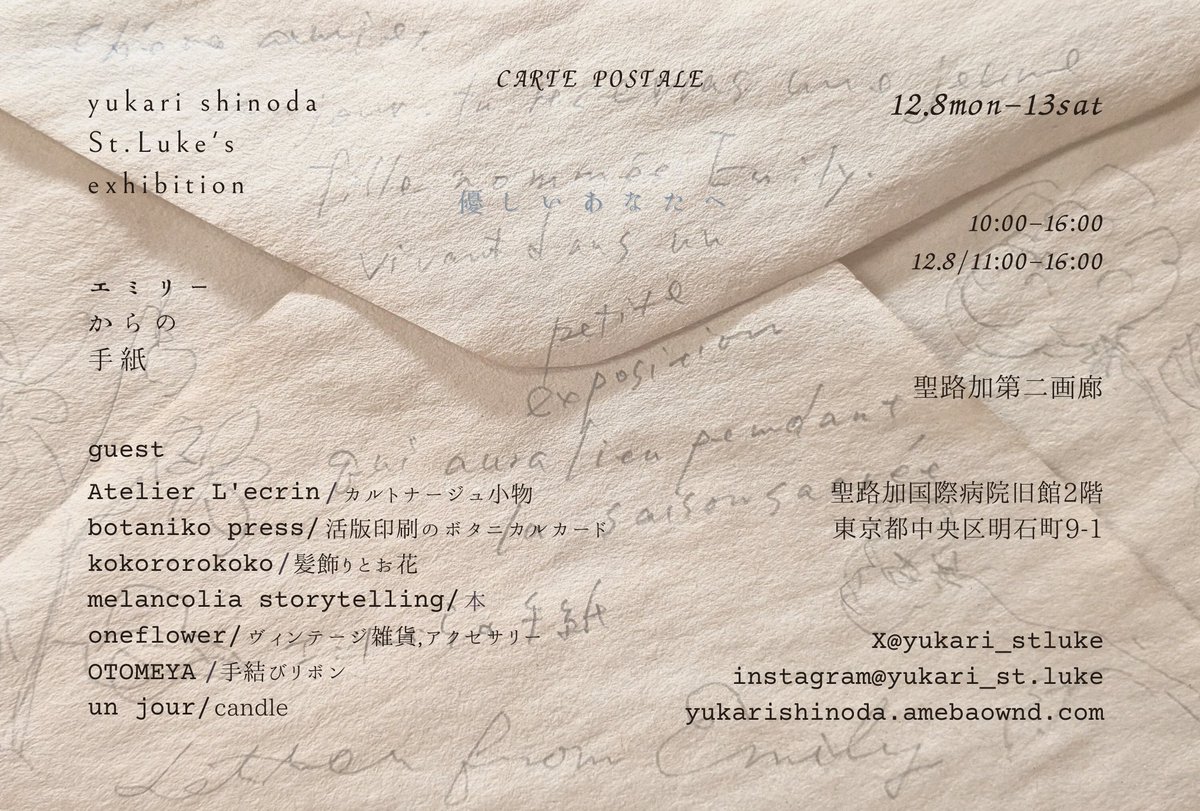 CARTE POSTALE
yukari shinoda
St.Luke's
exhibition
12.8mon-13sat
優しいあなたへ
10:00-16:00
12.8/11:00-16:00
エミリー
からの
手紙
聖路加第二画廊
聖路加国際病院旧館2階
東京都中央区明石町9-1
guest
Atelier L'ecrin/カルトナージュ小物
botaniko press/活版印刷のボタニカルカード
kokororokoko/髪飾りとお花
melancolia storytelling/本
oneflower/ヴィンテージ雑貨,アクセサリー
OTOMEYA/手結びリボン
un jour/candle
X@yukari_stluke
instagram@yukari_st.luke
yukarishinoda.amebaownd.com
fille nommée Emily.
vivant dans un
petite
exposition
qui aura lieu pendant
手紙
Letter from Emily